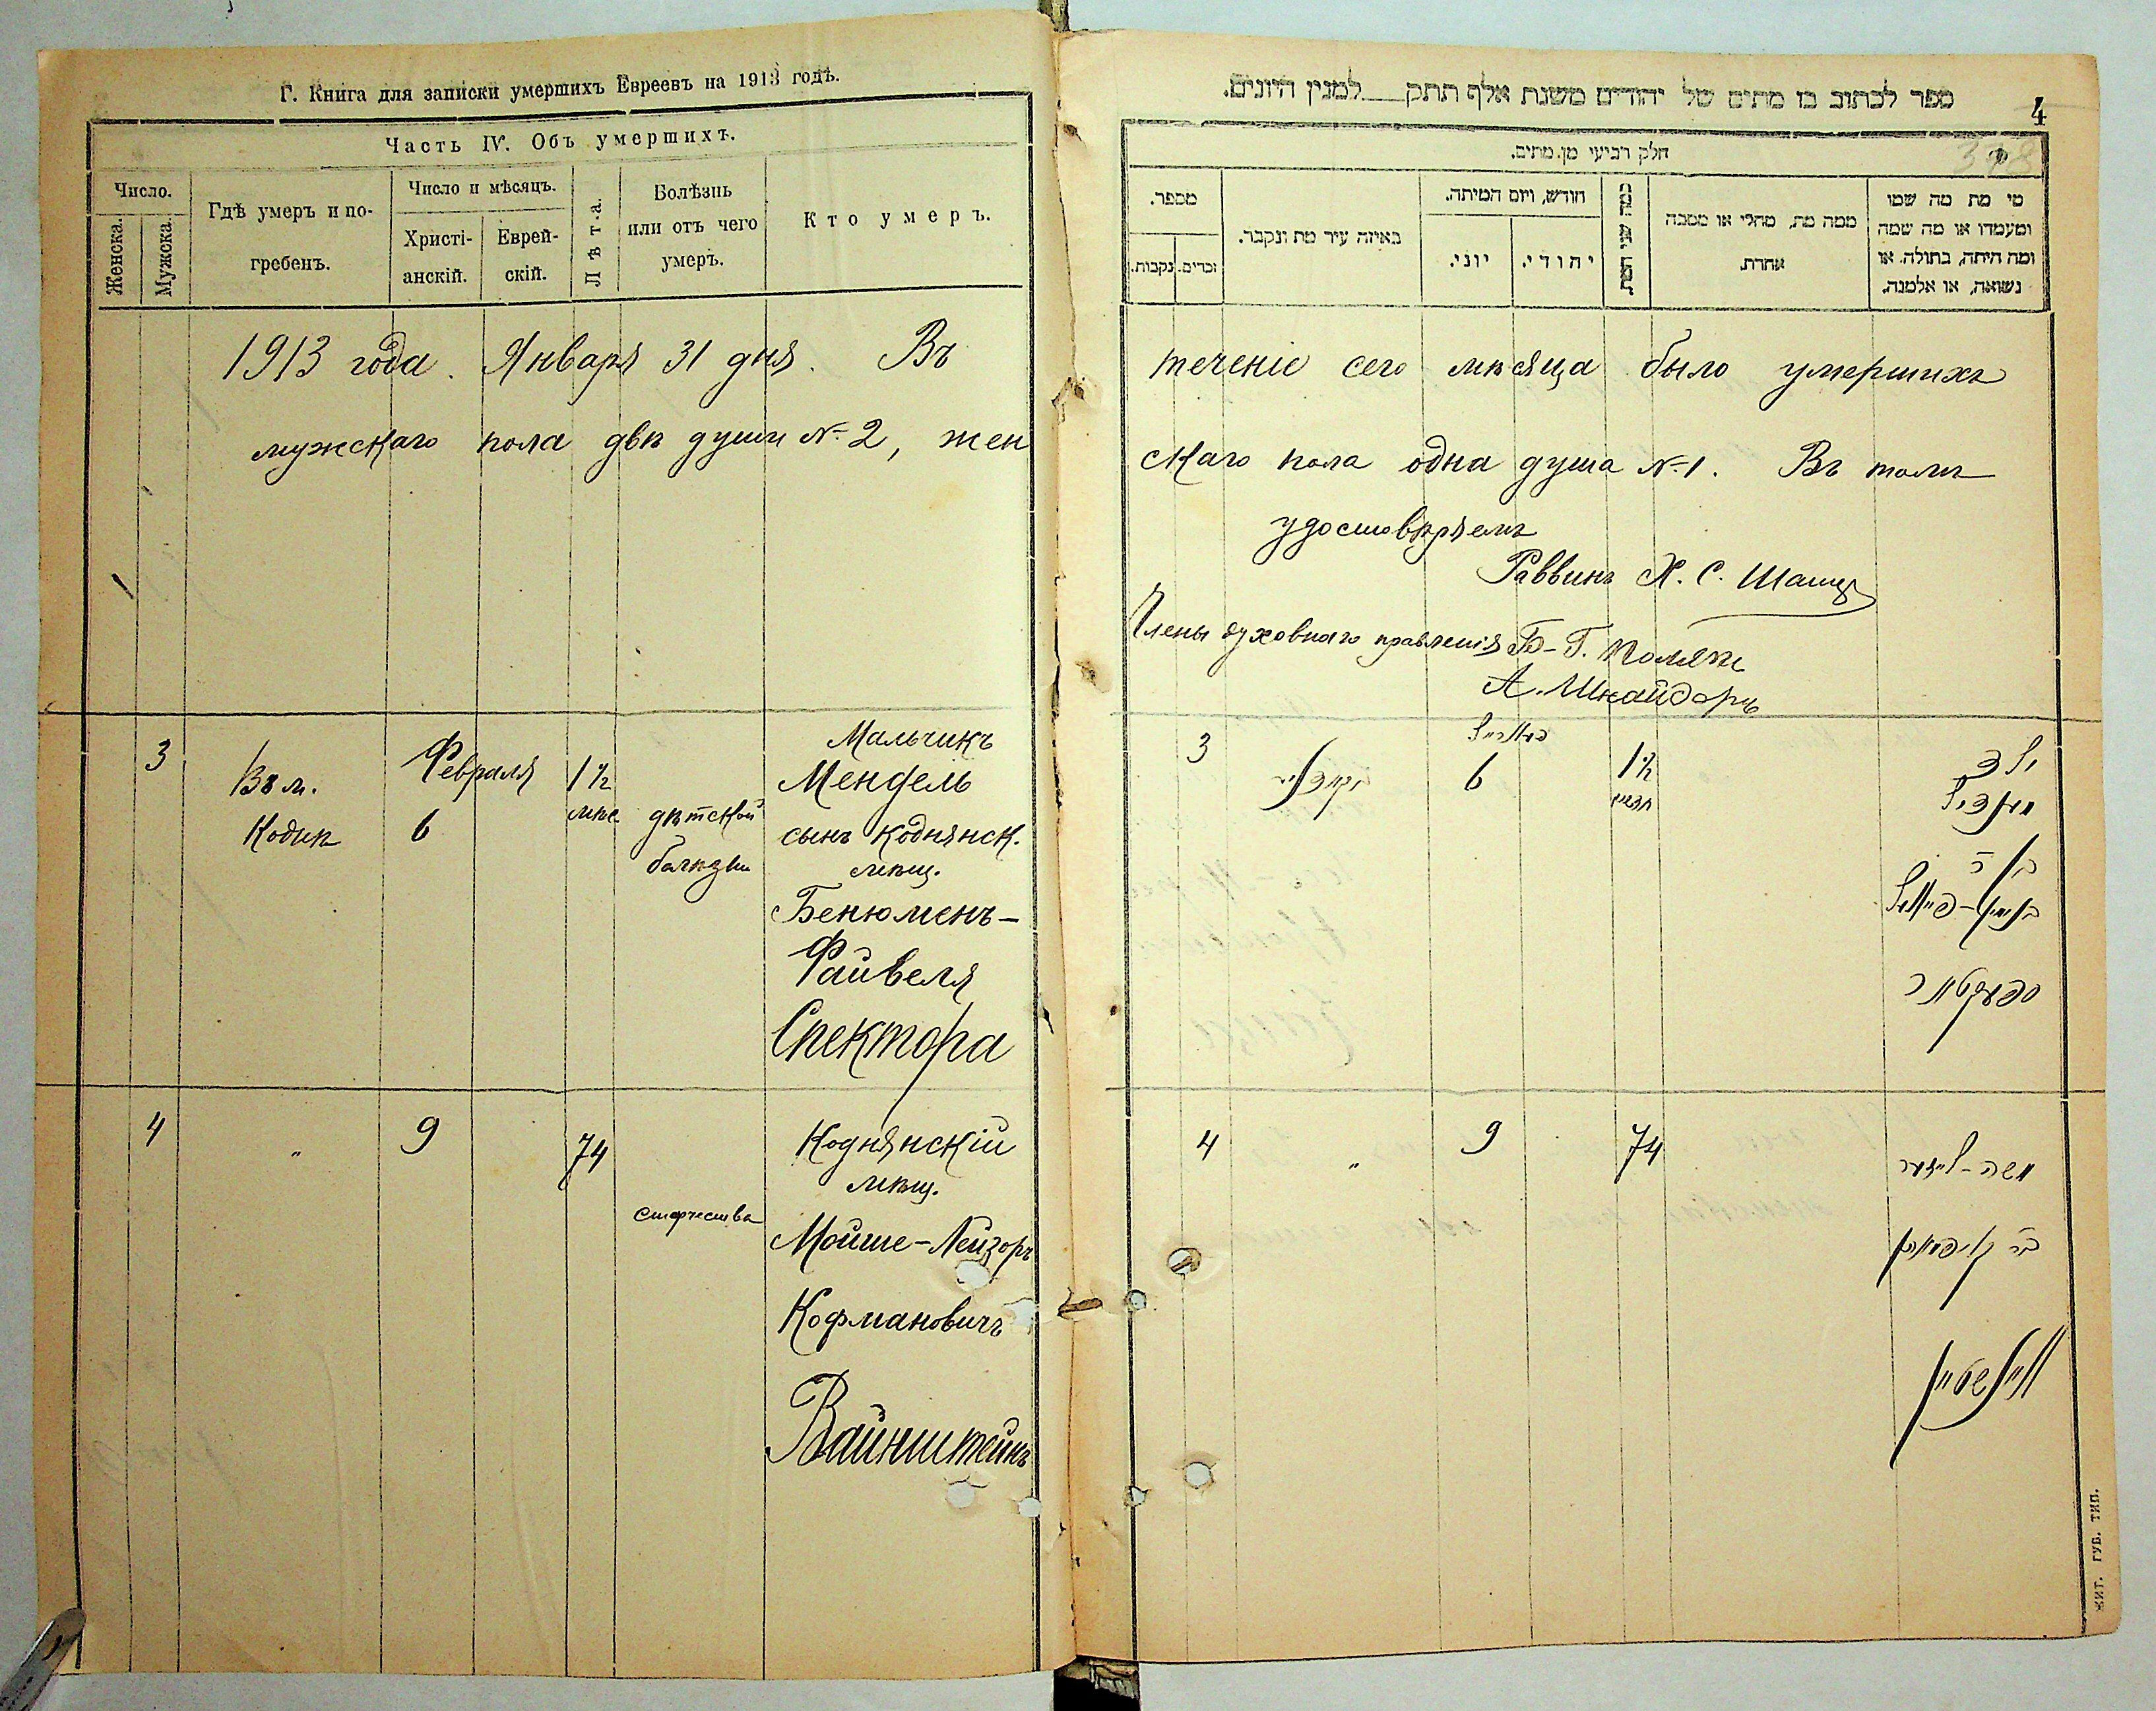 Г. Книга для записки умершихъ Евреевъ на 1913 годъ.
Часть IV. Объ умершихъ.
Число.
Женска.
Мужска.
Гдѣ умеръ и по-
гребенъ.
Число и мѣсяцъ.
Христі-
анскій.
Еврей-
скій.
Лѣта.
Болѣзнь
или отъ чего
умеръ.
Кто умеръ.
1913 года. Января 31 дня. Въ
мужскаго пола двѣ души №2, жен
3
Въ м.
Кодня
Февраля
6
1½
мѣс
дѣтской
болѣзни
Мальчикъ
Мендель
сынъ Коднянск.
мѣщ.
Бенюменъ-
Файвеля
Спектора
4
"
9
74
старчества
Коднянскій
мѣщ.
Мойше-Лейзоръ
Кофмановичъ
Вайнштейнъ
ספר לכתוב בו מתים של יהודים משנת אלף תתק___למנין היונים.
4
378
חלק רביעי מן מתים.
מספר.
נקבות.
זכרים.
באיזה עיר מת ונקבר.
חודש, ויום המיתה.
יוני.
יהודי.
כמה שני המת.
ממה מת, מחלי או מסבה
אחרת.
מי מת מה שמו
ומעמדו או מה שמה
ומה היתה, בתולה או
נשואה, או אלמנה.
теченіе сего мѣсяца было умершихъ
скаго пола одна душа №1. Въ томъ
удостовѣряемъ
Раввинъ Х. С.
Члены духовнаго правленія Б-Г. Полякъ
А. Шнайдеръ
3
6
1½
ילד
מענדיל
בנימין-פייוויל
ספעקטאר
4
"
9
74
משה-ליזער
בר קויפמאן
ווײנשטיין
ЖИТ. ГУБ. ТИП.